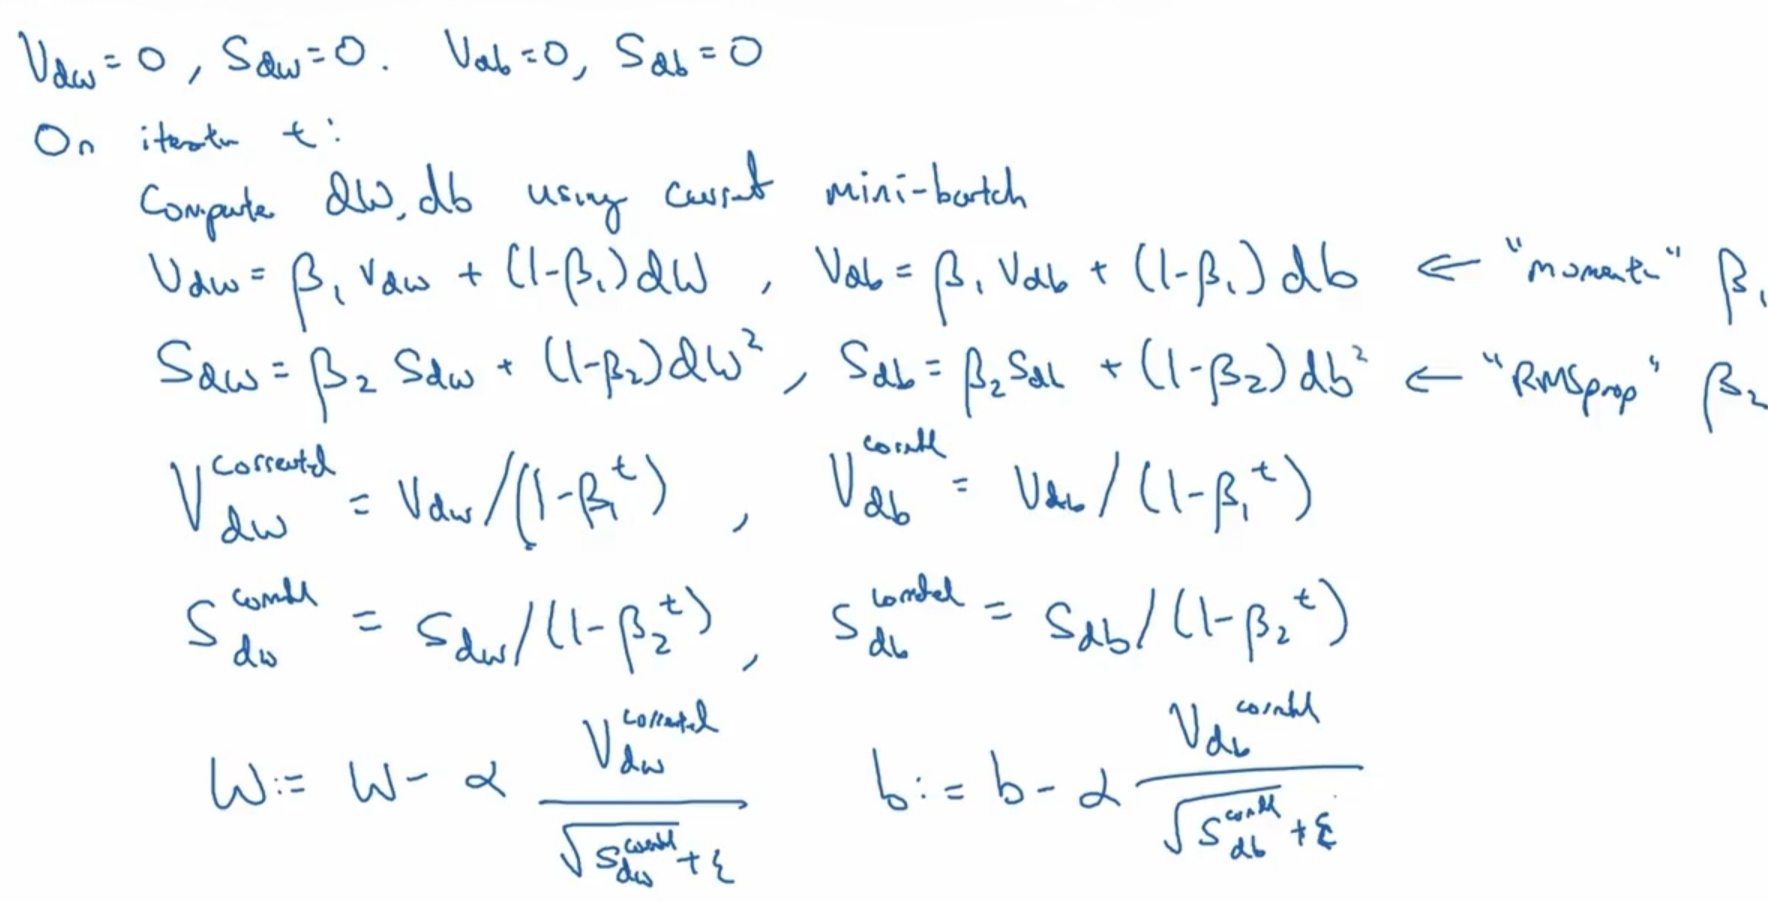 V_dw = 0, S_dw = 0. V_db = 0, S_db = 0
On iteratn t:
Compute dW, db using current mini-batch
V_dw = β₁ V_dw + (1-β₁) dW, V_db = β₁ V_db + (1-β₁) db ← "moment" β₁
S_dw = β₂ S_dw + (1-β₂) dW², S_db = β₂ S_db + (1-β₂) db² ← "RMSprop" β₂
V_dw^corrected = V_dw/(1-β₁^t), V_db^corrected = V_db/(1-β₁^t)
S_dw^corrected = S_dw/(1-β₂^t), S_db^corrected = S_db/(1-β₂^t)
W := W - α V_dw^corrected / (√S_dw^corrected + ε) b := b - α V_db^corrected / (√S_db^corrected + ε)